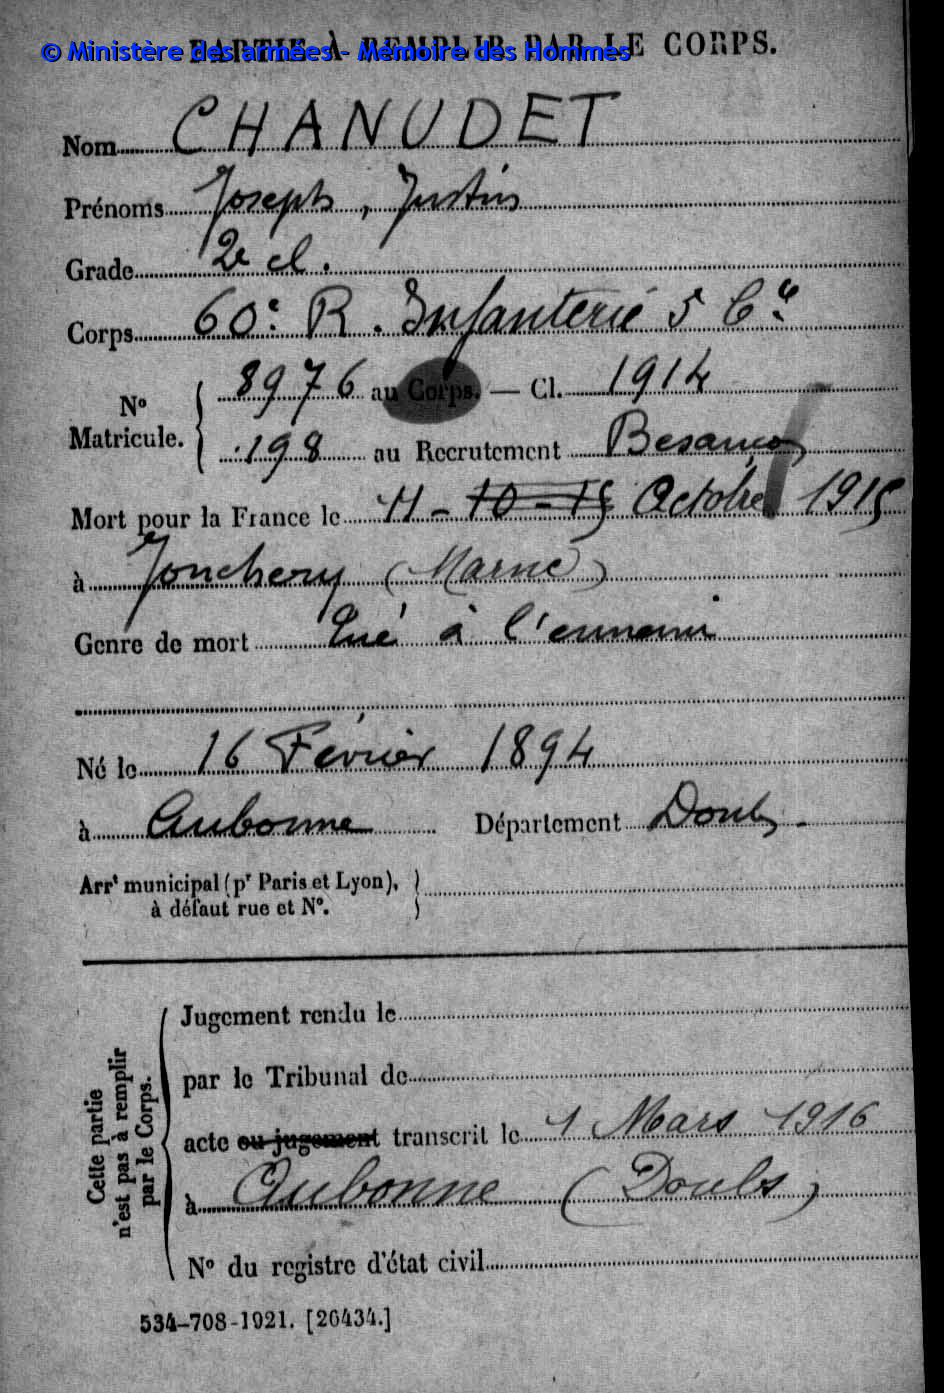 © Ministère des armées - Mémoire des Hommes
PARTIE À REMPLIR PAR LE CORPS.
Nom CHANUDET
Prénoms Joseph, Justin
Grade 2e cl.
Corps 60e R. Infanterie 5 Cie
No Matricule. { 8976 au Corps. — Cl. 1914
198 au Recrutement Besançon
Mort pour la France le 11 - 10 - 15 Octobre 1915
à Jonchery (Marne)
Genre de mort Tué à l'ennemi
Né le 16 Février 1894
à Aubonne Département Doubs.
Arrt municipal (pr Paris et Lyon), }
à défaut rue et No.
Cette partie n'est pas à remplir par le Corps.
Jugement rendu le
par le Tribunal de
acte ou jugement transcrit le 1 Mars 1916
à Aubonne (Doubs)
No du registre d'état civil
534-708-1921. [26434.]